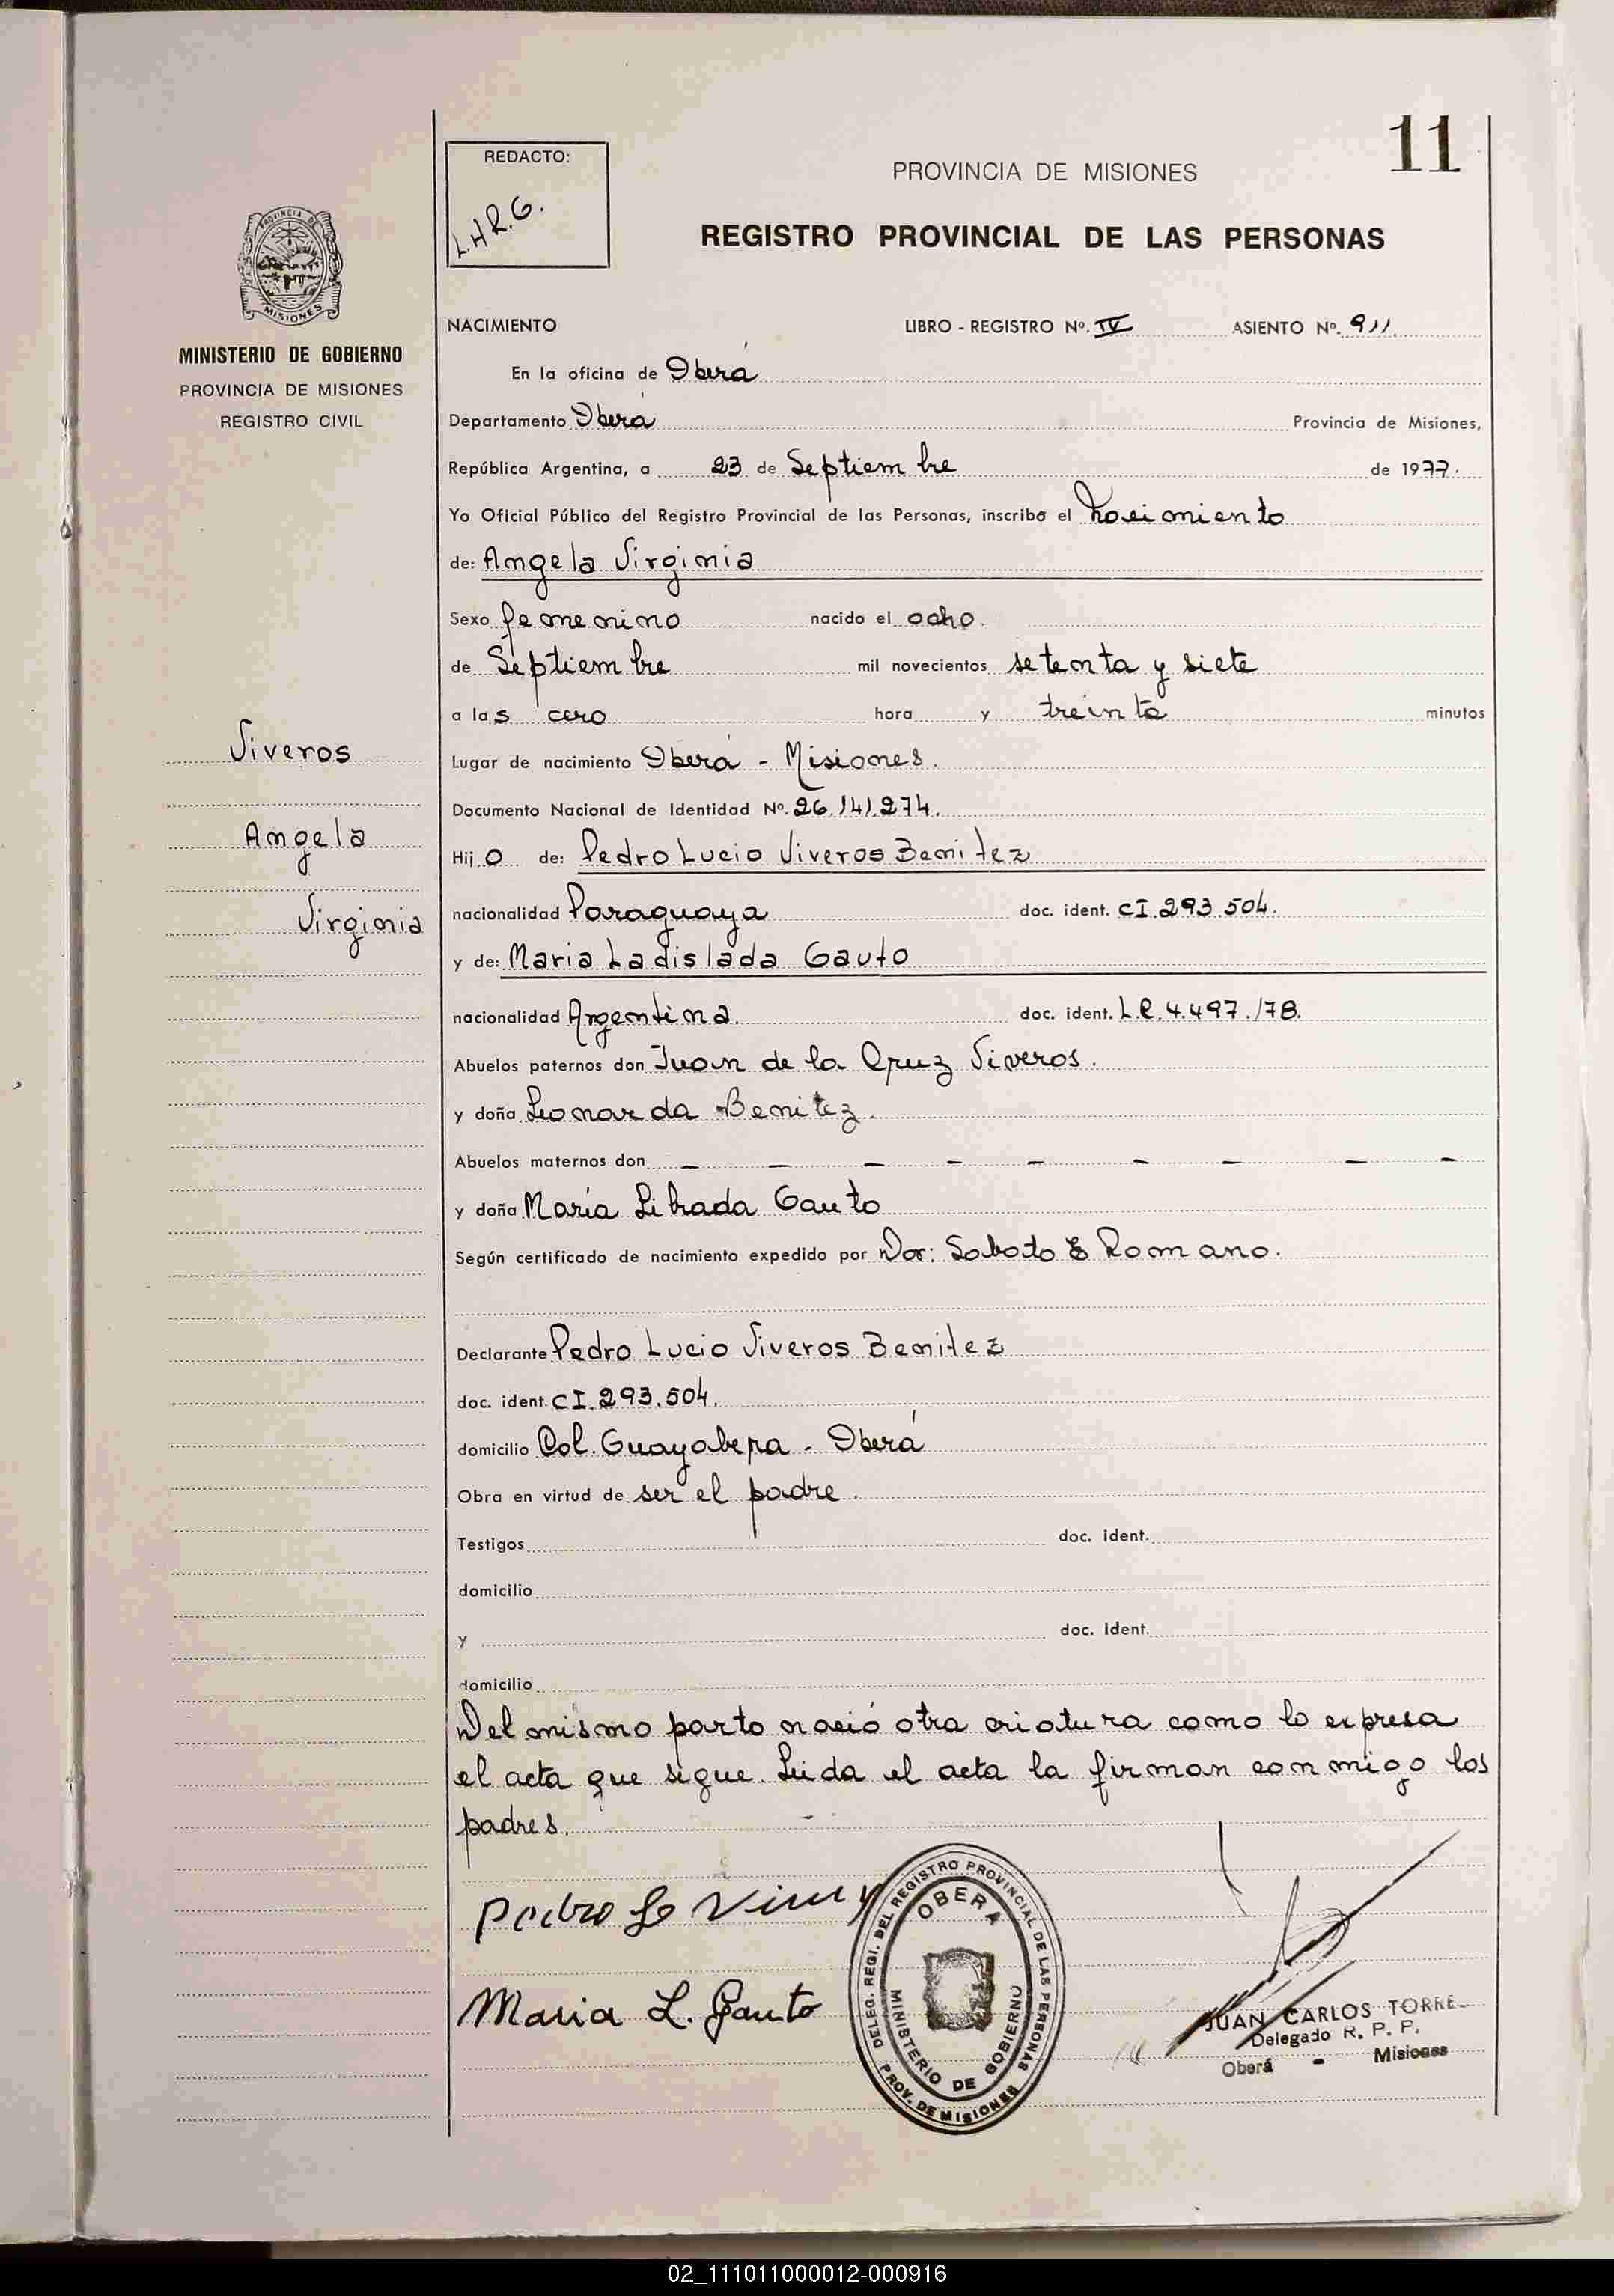 11
REDACTO:
L.H.R.G.
PROVINCIA DE MISIONES
REGISTRO PROVINCIAL DE LAS PERSONAS
PROVINCIA DE
MISIONES
MINISTERIO DE GOBIERNO
PROVINCIA DE MISIONES
REGISTRO CIVIL
Viveros
Angela
Virginia
NACIMIENTO LIBRO - REGISTRO Nº. IV ASIENTO Nº. 911.
En la oficina de Oberá
Departamento Oberá Provincia de Misiones,
República Argentina, a 23 de Septiembre de 1977.
Yo Oficial Público del Registro Provincial de las Personas, inscribo el nacimiento
de: Angela Virginia
Sexo femenino nacido el ocho.
de Septiembre mil novecientos setenta y siete
a las cero hora y treinta minutos
Lugar de nacimiento Oberá - Misiones.
Documento Nacional de Identidad Nº. 26.141.274.
Hijo de: Pedro Lucio Viveros Benitez
nacionalidad Paraguaya doc. ident. CI.293.504.
y de: Maria Ladislada Gauto
nacionalidad Argentina. doc. ident. L.C.4.497.178.
Abuelos paternos don Juan de la Cruz Viveros.
y doña Leonarda Benitez.
Abuelos maternos don — — — — — — — — —
y doña María Librada Gauto
Según certificado de nacimiento expedido por Dor: Saboto E Romano.
Declarante Pedro Lucio Viveros Benitez
doc. ident. CI.293.504.
domicilio Col. Guayabera - Oberá
Obra en virtud de ser el padre.
Testigos doc. ident.
domicilio
y doc. ident.
domicilio
Del mismo parto nació otra criatura como lo expresa
el acta que sigue. Leida el acta la firman conmigo los
padres.
Pedro L Viver
Maria L. Gauto
DELEG. REGI. DEL REGISTRO PROVINCIAL DE LAS PERSONAS
PROV. DE MISIONES
OBERA
MINISTERIO DE GOBIERNO
JUAN CARLOS TORRE
Delegado R. P. P.
Oberá - Misiones
02_111011000012-000916